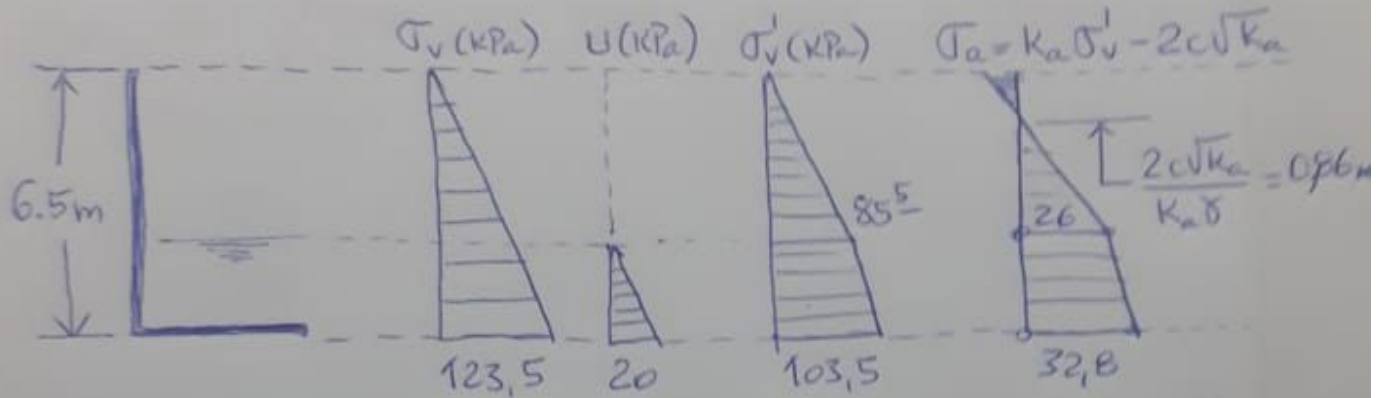 σv (KPa) u (KPa) σ'v (KPa) σa = Ka σ'v - 2c√Ka
6.5m
85⁵
26
2c√Ka / Kaγ = 0,86m
123,5 20 103,5 32,8